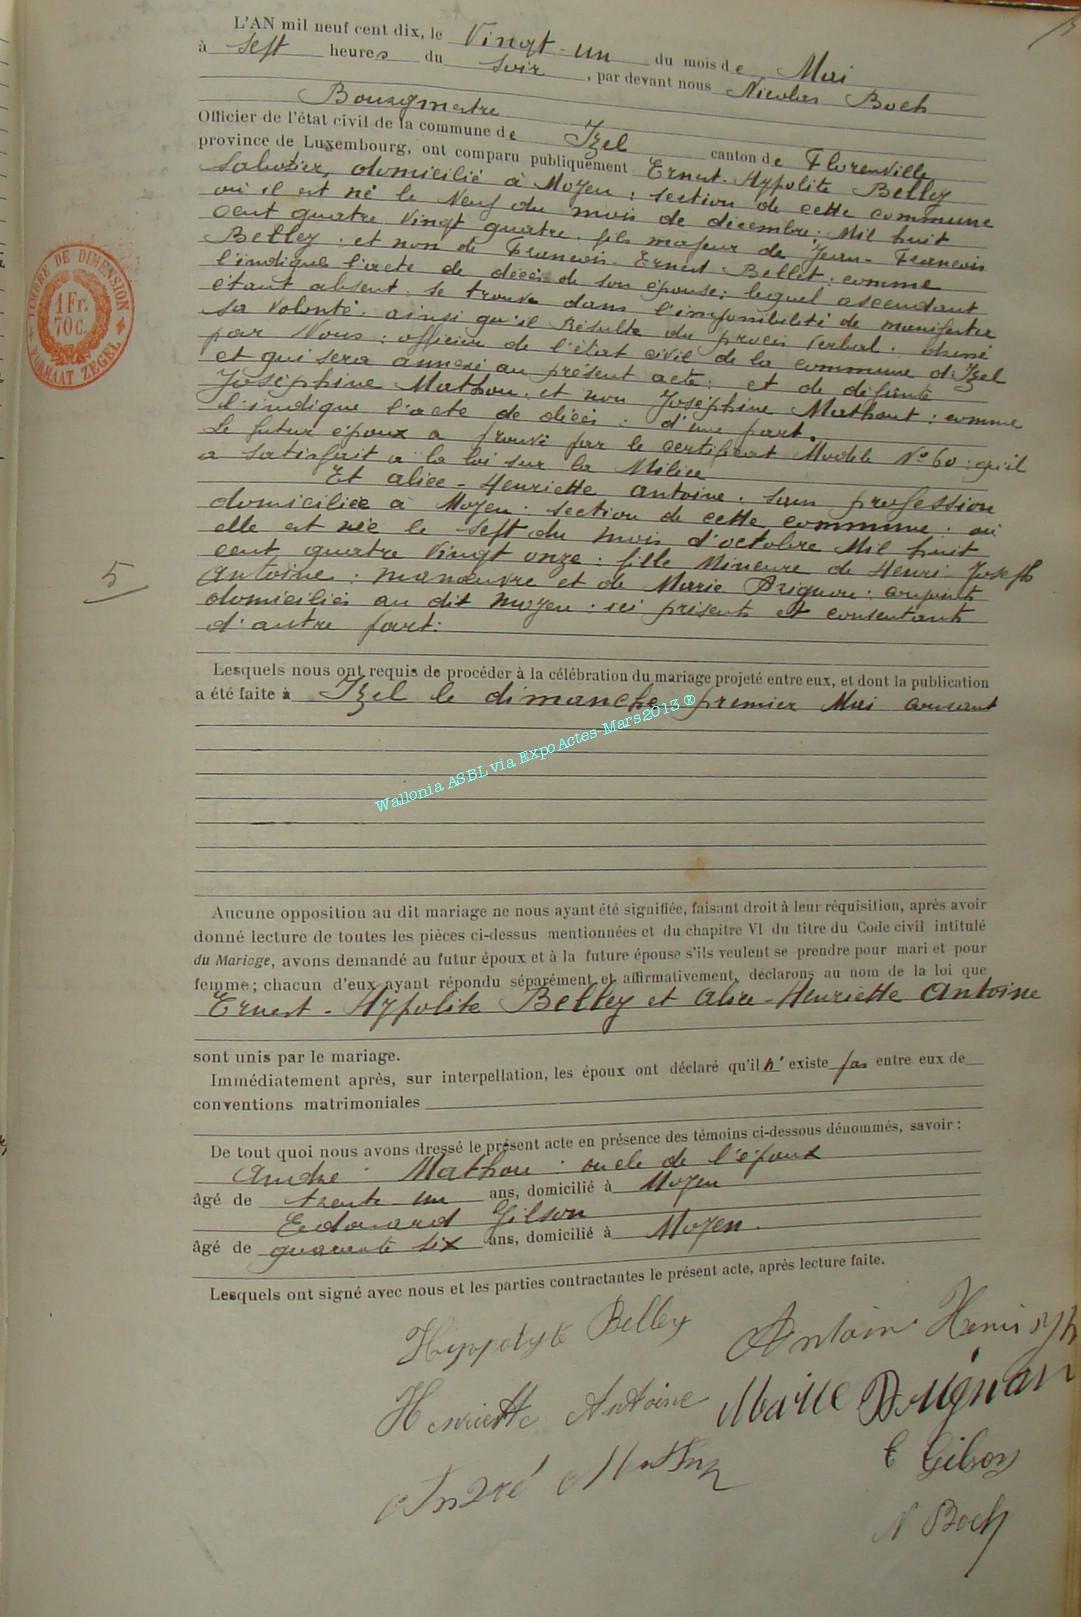 L'AN mil neuf cent dix, le Vingt-un du mois de Mai
à sept heures du soir, par devant nous Nicolas Boch
Bourgmestre
Officier de l'état civil de la commune de Izel canton de Florenville
province de Luxembourg, ont comparu publiquement Ernest-Hyppolite Belley
Sabotier, domicilié à Moyen, section de cette commune
où il est né le Neuf du mois de décembre Mil huit
cent quatre Vingt quatre, fils majeur de Jean-Francois
Belley, et non de Francois-Ernest Bellet, comme
l'indique l'acte de décès de son épouse; lequel ascendant
étant absent se trouve dans l'impossibilité de manifester
sa Volonté, ainsi qu'il Résulte du procès Verbal, dressé
par Nous, officier de l'état civil de la commune d'Izel
et qui sera annexé au présent acte; et de défunte
Joséphine Mathou, et non Joséphine Mathout, comme
l'indique l'acte de décès, d'une part.
Le futur époux a prouvé par le certificat Modèle N° 60 qu'il
a satisfait à la loi sur la Milice
Et alice-Henriette antoine, sans profession
domiciliée à Moyen, section de cette commune, où
elle est née le sept du mois d'octobre Mil huit
cent quatre Vingt onze, fille Mineure de Henri-Joseph
Antoine, manœuvre et de Marie Drignon, conjoints
domiciliés au dit Moyen, ici présents et consentants
d'autre part.
5
TIMBRE DE DIMENSION
1 Fr.
70 c.
FORMAAT ZEGEL
Lesquels nous ont requis de procéder à la célébration du mariage projeté entre eux, et dont la publication
a été faite à Izel le dimanche premier Mai courant
Wallonia ASBL via ExpoActes-Mars2013 ®
Aucune opposition au dit mariage ne nous ayant été signifiée, faisant droit à leur réquisition, après avoir
donné lecture de toutes les pièces ci-dessus mentionnées et du chapitre VI du titre du Code civil intitulé
du Mariage, avons demandé au futur époux et à la future épouse s'ils veulent se prendre pour mari et pour
femme; chacun d'eux ayant répondu séparément et affirmativement, déclarons au nom de la loi que
Ernest-Hyppolite Belley et alice-Henriette Antoine
sont unis par le mariage.
Immédiatement après, sur interpellation, les époux ont déclaré qu'il n'existe pas entre eux de
conventions matrimoniales
De tout quoi nous avons dressé le présent acte en présence des témoins ci-dessous dénommés, savoir :
André Mathou, oncle de l'époux
âgé de trente un ans, domicilié à Moyen
Edouard Gilson
âgé de quarante six ans, domicilié à Moyen.
Lesquels ont signé avec nous et les parties contractantes le présent acte, après lecture faite.
Hippolyte Belley Antoine Henri Jph
Henriette Antoine Marie Drignon
André Mathou E Gilson
N Boch